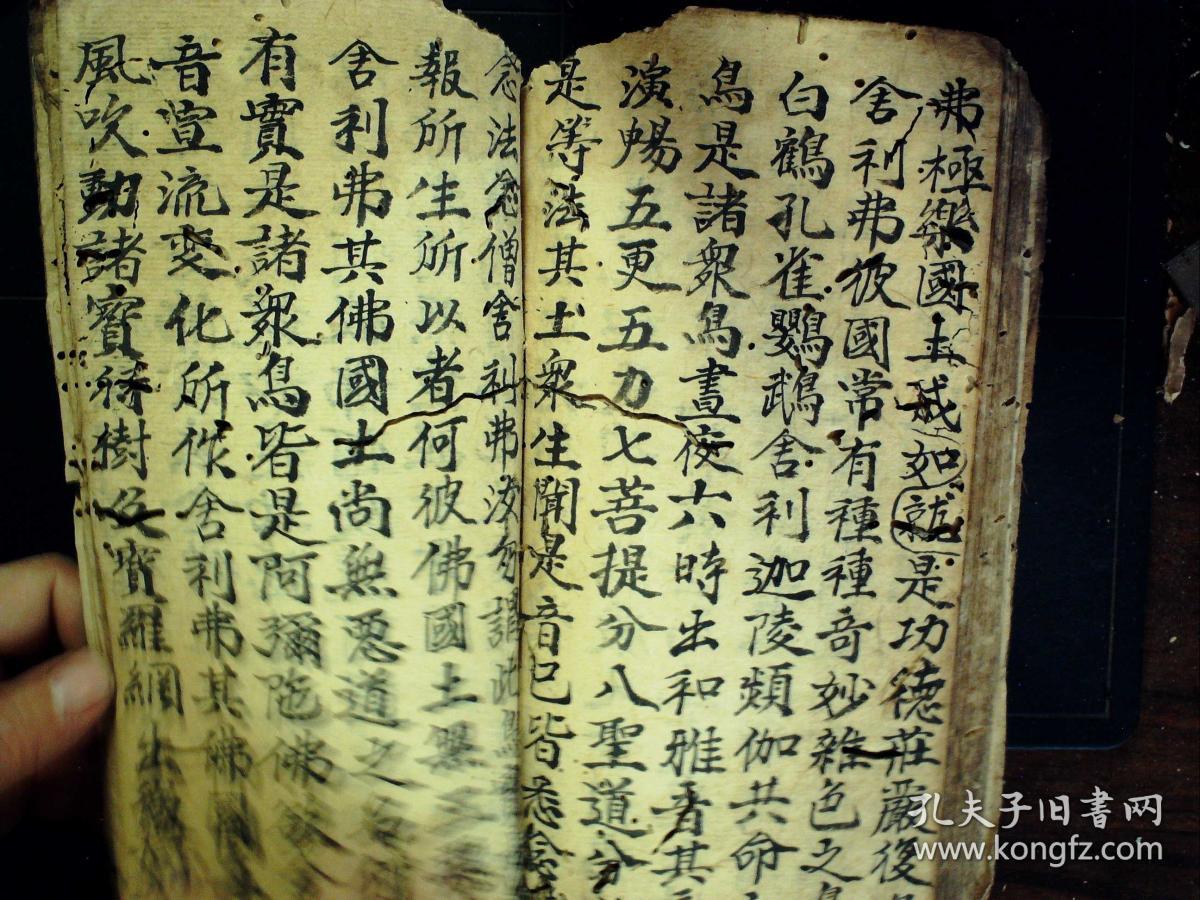 弗極樂國土成如就是功德莊嚴後
舍利弗彼國常有種種奇妙雜色之鳥
白鶴孔雀鸚鵡舍利迦陵頻伽共命
鳥是諸衆鳥晝夜六時出和雅音其
演暢五更五力七菩提分八聖道分
是等法其土衆生聞是音已皆悉念
念法念僧舍利弗汝勿謂此鳥
報所生所以者何彼佛國土無三惡
舍利弗其佛國土尚無惡道之名
有實是諸衆鳥皆是阿彌陀佛欲
音宣流变化所作舍利弗其佛國
風吹動諸寳行樹及寳羅網出微
孔夫子旧書网
www.kongfz.com